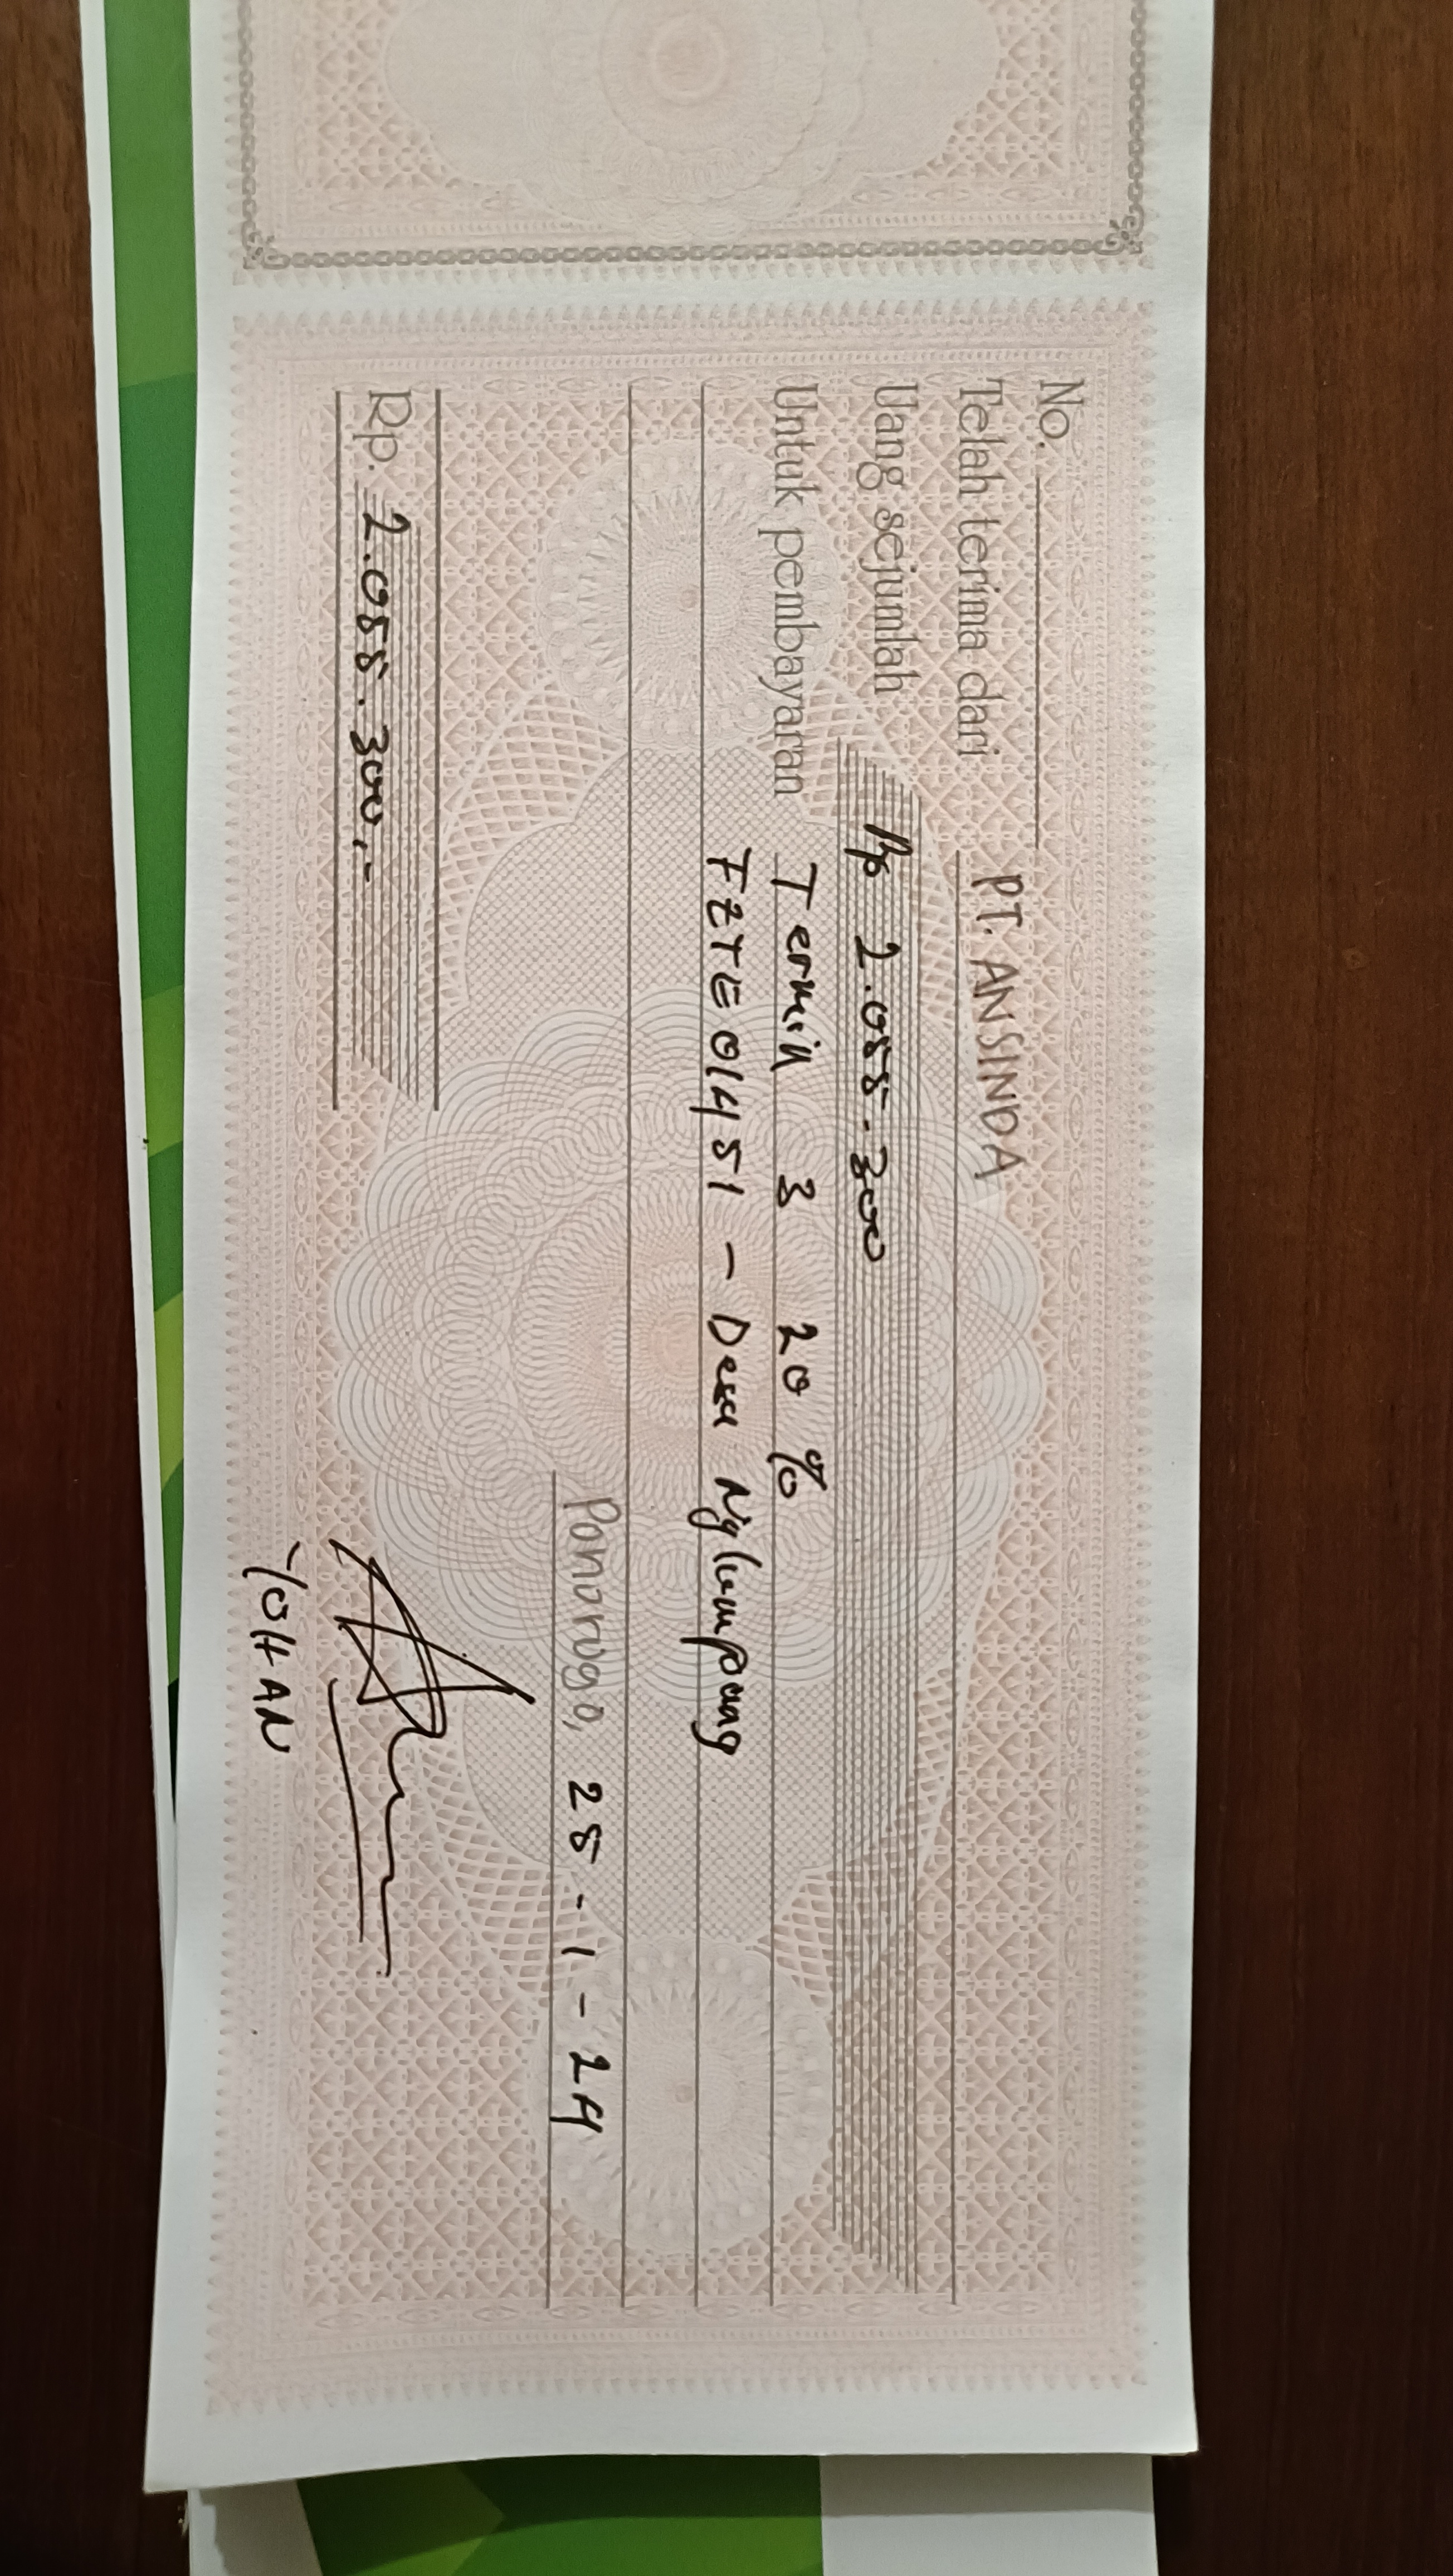 No.
Telah terima dari PT. ANSINDA
Uang sejumlah Rp 2.055.300
Untuk pembayaran Termin 3 20 %
FZTE 01451 - Desa Nglumpang
Ponorogo, 25 - 1 - 24
Rp. 2.055.300,-
YOHAN